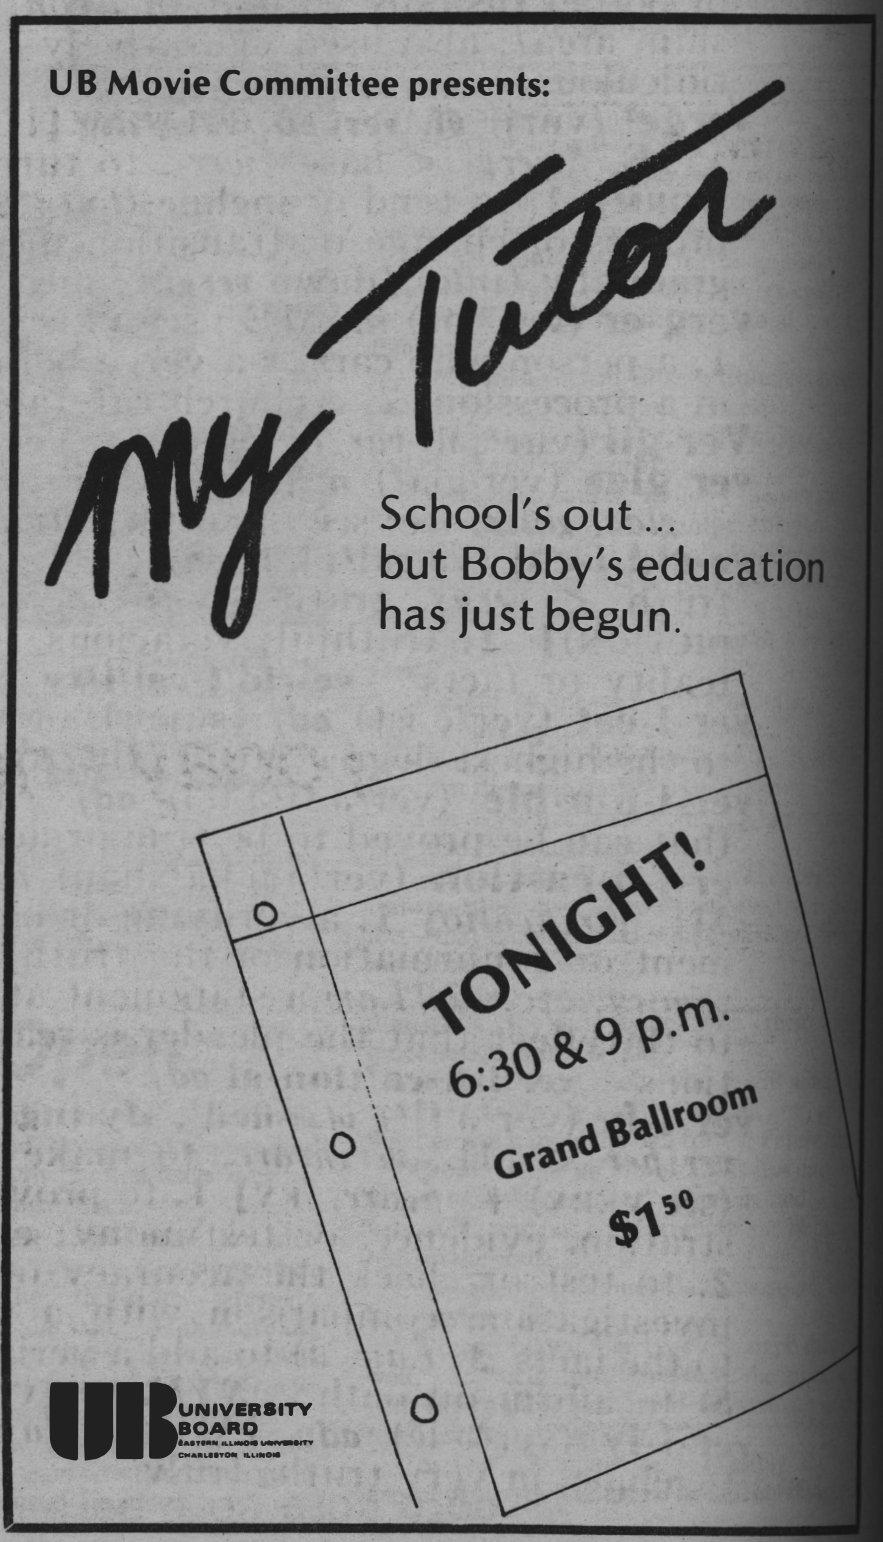 UB Movie Committee presents:
My Tutor
School's out ...
but Bobby's education
has just begun.
TONIGHT!
6:30 & 9 p.m.
Grand Ballroom
$1⁵⁰
UB UNIVERSITY
BOARD
EASTERN ILLINOIS UNIVERSITY
CHARLESTON ILLINOIS